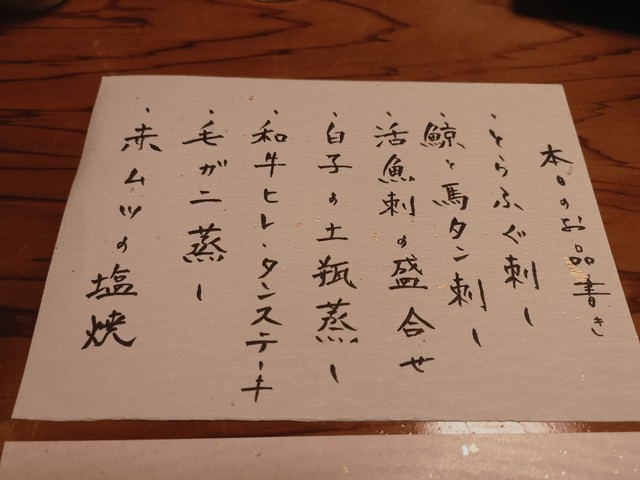 本日のお品書き
・とらふぐ刺し
・鯨と馬タン刺し
・活魚刺の盛合せ
・白子の土瓶蒸し
・和牛ヒレ・タンステーキ
・毛ガニ蒸し
・赤ムツの塩焼